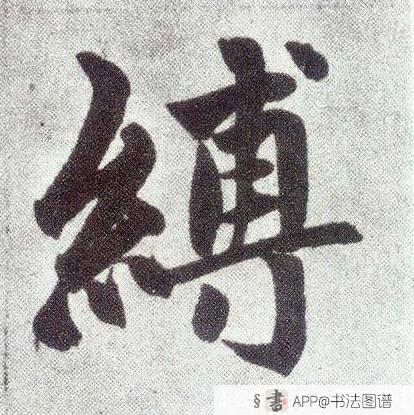 縛
§書 APP@书法图谱